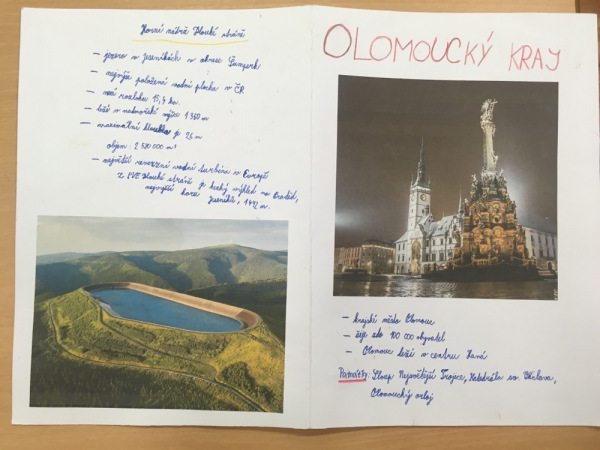 Horní nádrž Dlouhé stráně
– jezero v Jeseníkách v okrese Šumperk
– nejvýše položená vodní plocha v ČR
– má rozlohu 15,4 ha.
– leží v nadmořské výšce 1 350 m
– maximální hloubka je 26 m
objem: 2 580 000 m³
– největší reverzní vodní turbína v Evropě
z PVE Dlouhé stráně je hezký výhled na Praděd,
nejvyšší horu Jeseníků, 1492 m.
OLOMOUCKÝ KRAJ
– krajské město Olomouc
– žije zde 100 000 obyvatel
– Olomouc leží v centru Hané
Památky: Sloup Nejsvětější Trojice, Katedrála sv. Václava,
Olomoucký orloj